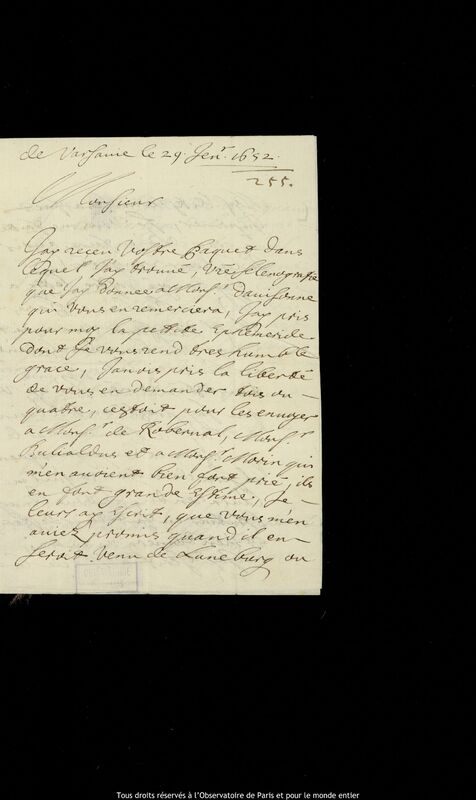 de Varsavie le 29 Jenr. 1652.
255.
Monsieur
Jay receu Vostre Paquet dans
lequel Jay trouvé, une Selenografie
que Jay donnee a Monsr. Davisonne
qui vous en remerciera, Jay pris
pour moy la petite Ephemeride
dont Je vous rend tres humble
grace, Javois pris la liberté
de vous en demander trois ou
quatre, cestoit pour les envoyer
a Monsr. de Roberval, Monsr.
Bulialdus et a Monsr. Morin qui
m'en avoient bien fort prié, ils
en font grande Estime, Je
leurs ay escrit, que vous m'en
aviez promis quand il en
seroit venu de Luneburg ou
Tous droits réservés à l'Observatoire de Paris et pour le monde entier